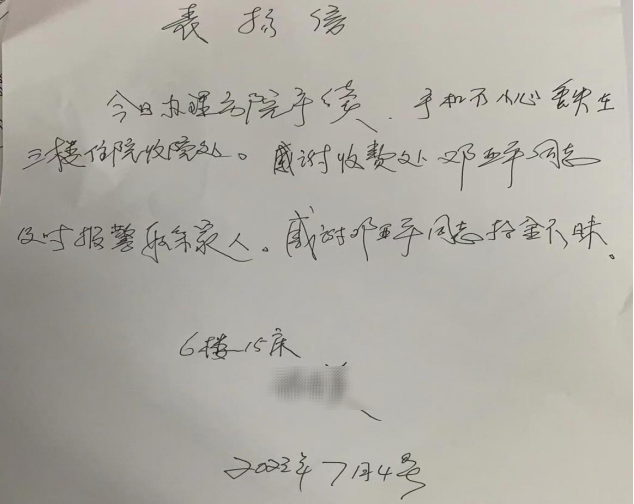 表扬信
今日办理出院手续、手机不小心丢失在
三楼住院收费处。感谢收费处邓亚平同志
及时报警联系家人。感谢邓亚平同志拾金不昧。
6楼15床
2023年7月4号